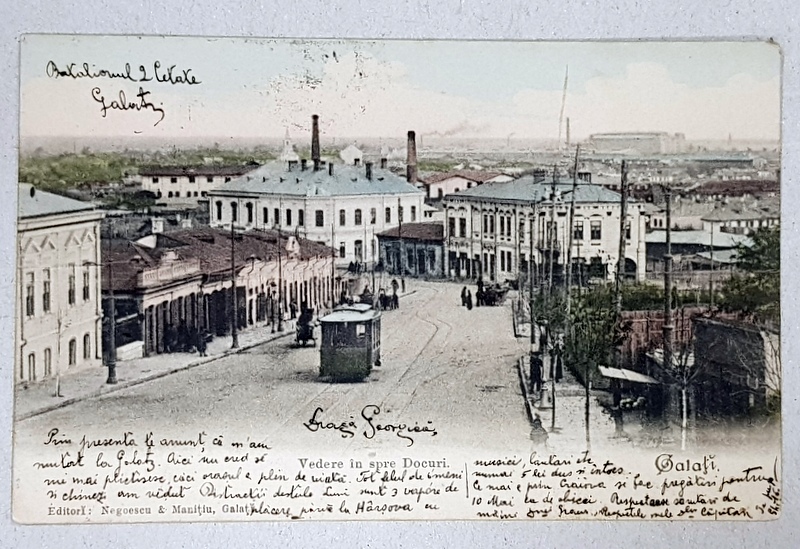 Batalionul 2 Cetate
Galatz
Dragă Georgică,
Prin presenta te anunt că m'am
mutat la Galatz. Aici nu cred să
mai plictisesc, căci orașul e plin de viată. Tot felul de
si chinez am vădut. Distractii destule. Luni sunt 3 vapoare de
plăcere până la Hârșova cu
Vedere în spre Docuri.
Editorĭ: Negoescu & Manițiu, Galați
musici, lăutari etc.
numai 5 lei dus și întors.
Ce mai e prin Craiova se fac pregătiri pentru
10 Mai ca de obiceiu. Respectoase salutări de
mele Căpitan
Galațĭ.